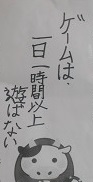 ゲームは、
一日一時間以上
遊ばない